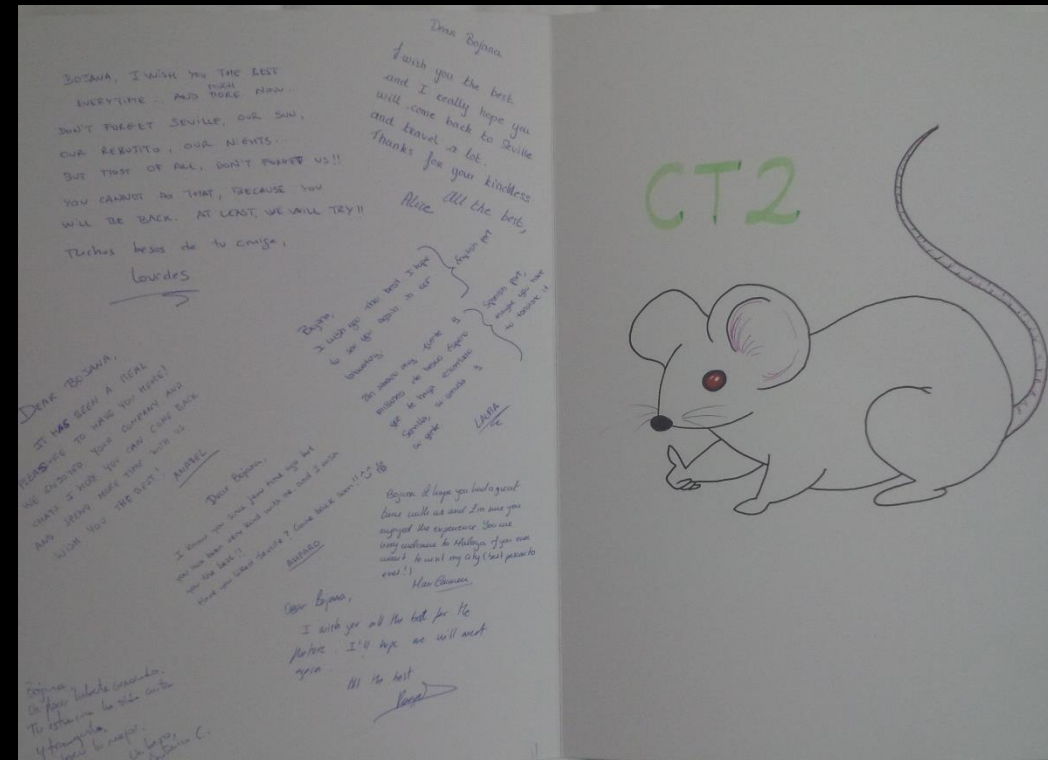 BOJANA, I WISH YOU THE BEST
EVERYTIME... AND MUCH MORE NOW...
DON'T FORGET SEVILLE, OUR SUN,
OUR REBUJITO, OUR NIGHTS...
BUT MOST OF ALL, DON'T FORGET US!!
YOU CANNOT DO THAT, BECAUSE YOU
WILL BE BACK. AT LEAST, WE WILL TRY!!
Muchos besos de tu amiga,
Lourdes
Dear Bojana
I wish you the best
and I really hope you
will come back to Seville
and travel a lot.
Thanks for your kindness
All the best,
Alice
Bojana,
I wish you the best I hope
to see you again in our
English part
Spanish part,
maybe you have
to translate it
Sevilla, tu
LAURA
DEAR BOJANA,
IT HAS BEEN A REAL
PLEASURE TO HAVE YOU HERE!
WE ENJOYED YOUR COMPANY AND
CHATS. I HOPE YOU CAN COME BACK
AND SPEND MORE TIME WITH US
WISH YOU THE BEST! ANABEL
Dear Bojana,
I know you since few time ago but
you have been very kind with me and I wish
you the best!!
Come back soon!!
AMPARO
Bojana I hope you had a great
time with us and I'm sure you
enjoyed the experience You are
very welcome to Malaga if you ever
want to visit my city (best place to
ever!)
Mari Carmen
Dear Bojana,
I wish you all the best for the
future. I'll hope we will meet
again.
All the best
Bojana,
Tu estancia ha sido corta
y tranquila.
Un beso,
CT2